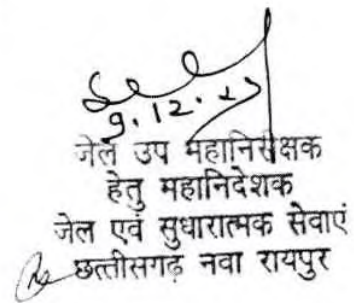 9.12.
जेल उप महानिरीक्षक
हेतु महानिदेशक
जेल एवं सुधारात्मक सेवाएं
छत्तीसगढ़ नवा रायपुर